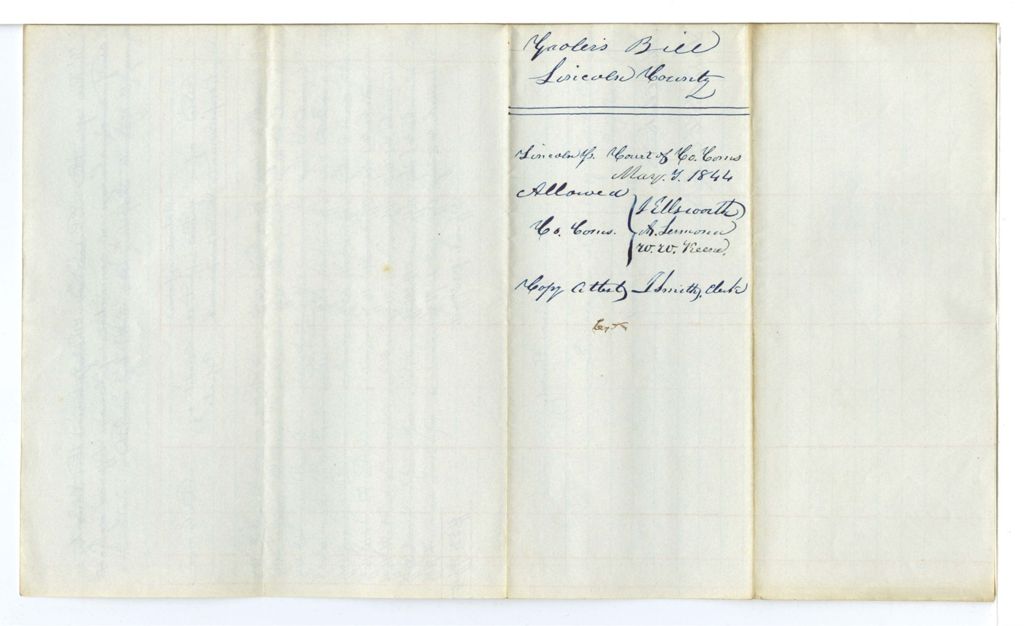 Gaoler's Bill
Lincoln County
Lincoln ss. Court of Co. Coms
May. T. 1844
Allowed
J Ellsworth
Co. Coms. A. Lermond
W. W. Keene
Copy Attest, J Smith, Clerk